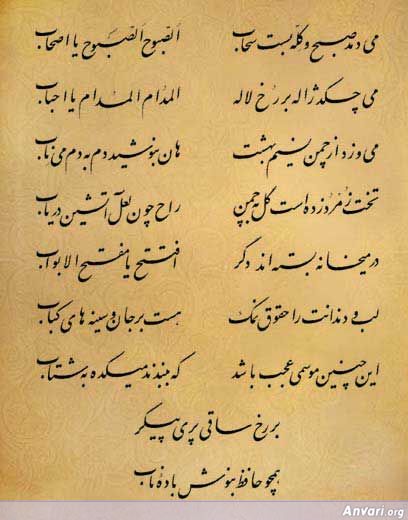 می دمد صبح و کله بست سحاب الصبوح الصبوح یا اصحاب
می چکد ژاله بر رخ لاله المدام المدام یا احباب
می وزد از چمن نسیم بهشت هان بنوشید دم به دم می ناب
تخت زمرد زده است گل به چمن راح چون لعل آتشین دریاب
در میخانه بسته اند دگر افتتح یا مفتح الابواب
لب و دندانت را حقوق نمک هست بر جان و سینه های کباب
این چنین موسمی عجب باشد که ببندند میکده به شتاب
بر رخ ساقی پری پیکر
همچو حافظ بنوش باده ناب
Anvari.org